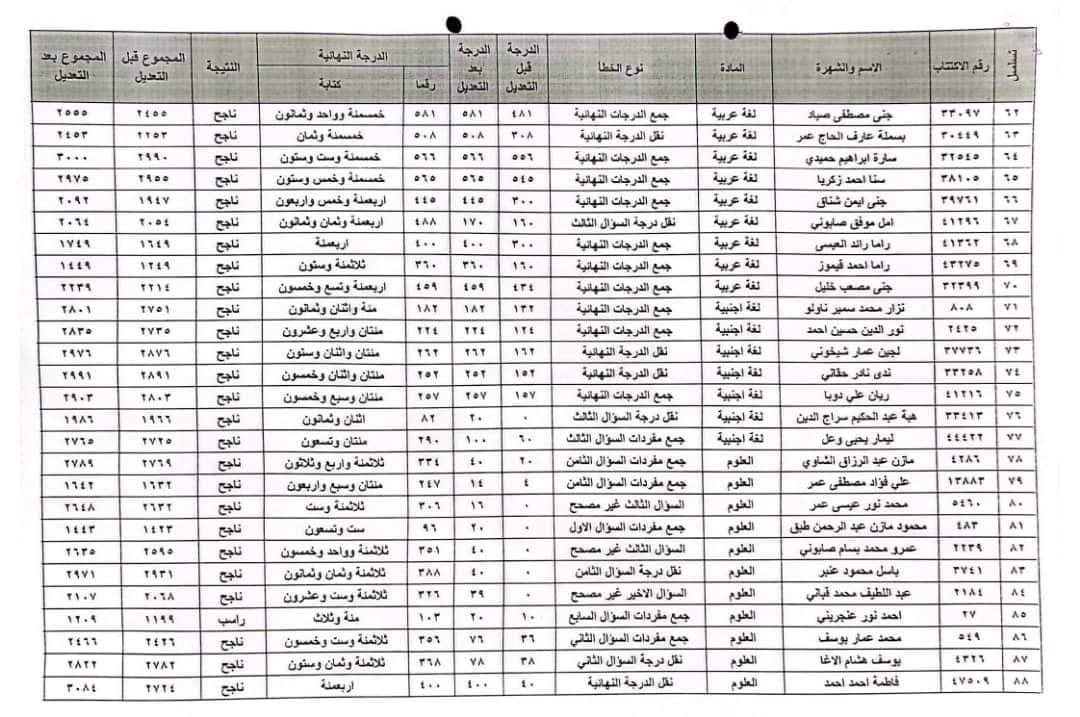 تسلسل رقم الاكتتاب الاسم والشهرة المادة نوع الخطأ الدرجة قبل التعديل الدرجة بعد التعديل الدرجة النهائية رقما كتابة النتيجة المجموع قبل التعديل المجموع بعد التعديل
٦٢ ٣٣٠٩٧ جنى مصطفى صياد لغة عربية جمع الدرجات النهائية ٤٨١ ٥٨١ ٥٨١ خمسمئة وواحد وثمانون ناجح ٢٤٥٥ ٢٥٥٥
٦٣ ٣٠٤٤٩ بسملة عارف الحاج عمر لغة عربية نقل الدرجة النهائية ٣٠٨ ٥٠٨ ٥٠٨ خمسمئة وثمان ناجح ٢٢٥٣ ٢٤٥٣
٦٤ ٣٢٥٤٥ سارة ابراهيم حميدي لغة عربية جمع الدرجات النهائية ٥٥٦ ٥٦٦ ٥٦٦ خمسمئة وست وستون ناجح ٢٩٩٠ ٣٠٠٠
٦٥ ٣٨١٠٥ سنا احمد زكريا لغة عربية جمع الدرجات النهائية ٥٤٥ ٥٦٥ ٥٦٥ خمسمئة وخمس وستون ناجح ٢٩٥٥ ٢٩٧٥
٦٦ ٣٩٧٦١ جنى ايمن شناق لغة عربية جمع الدرجات النهائية ٣٠٠ ٤٤٥ ٤٤٥ اربعمئة وخمس واربعون ناجح ١٩٤٧ ٢٠٩٢
٦٧ ٤١٢٩٦ امل موفق صابوني لغة عربية نقل درجة السؤال الثالث ١٦٠ ١٧٠ ٤٨٨ اربعمئة وثمان وثمانون ناجح ٢٠٥٤ ٢٠٦٤
٦٨ ٤١٣٦٢ راما رائد العيسى لغة عربية جمع الدرجات النهائية ٣٠٠ ٤٠٠ ٤٠٠ اربعمئة ناجح ١٦٤٩ ١٧٤٩
٦٩ ٤٣٢٧٥ راما احمد قيموز لغة عربية جمع الدرجات النهائية ١٦٠ ٣٦٠ ٣٦٠ ثلاثمئة وستون ناجح ١٢٤٩ ١٤٤٩
٧٠ ٣٢٣٩٩ جنى مصعب خليل لغة عربية جمع الدرجات النهائية ٤٣٤ ٤٥٩ ٤٥٩ اربعمئة وتسع وخمسون ناجح ٢٢١٤ ٢٢٣٩
٧١ ٨٠٨ نزار محمد سمير ناولو لغة اجنبية جمع الدرجات النهائية ١٣٢ ١٨٢ ١٨٢ مئة واثنان وثمانون ناجح ٢٧٥١ ٢٨٠١
٧٢ ٢٤٢٥ نور الدين حسين احمد لغة اجنبية جمع الدرجات النهائية ١٢٤ ٢٢٤ ٢٢٤ مئتان واربع وعشرون ناجح ٢٧٣٥ ٢٨٣٥
٧٣ ٣٧٧٣٦ لجين عمار شيخوني لغة اجنبية نقل الدرجة النهائية ١٦٢ ٢٦٢ ٢٦٢ مئتان واثنان وستون ناجح ٢٨٧٦ ٢٩٧٦
٧٤ ٣٣٢٥٨ ندى نادر حقاني لغة اجنبية نقل الدرجة النهائية ١٥٢ ٢٥٢ ٢٥٢ مئتان واثنان وخمسون ناجح ٢٨٩١ ٢٩٩١
٧٥ ٤١٢١٦ ريان علي دوبا لغة اجنبية جمع الدرجات النهائية ١٥٧ ٢٥٧ ٢٥٧ مئتان وسبع وخمسون ناجح ٢٨٠٣ ٢٩٠٣
٧٦ ٣٣٤١٣ هبة عبد الحكيم سراج الدين لغة اجنبية نقل درجة السؤال الثالث ٠ ٢٠ ٨٢ اثنان وثمانون ناجح ١٩٦٦ ١٩٨٦
٧٧ ٤٤٤٢٢ ليمار يحيى وعل لغة اجنبية جمع مفردات السؤال الثالث ٦٠ ١٠٠ ٢٩٠ مئتان وتسعون ناجح ٢٧٢٥ ٢٧٦٥
٧٨ ٤٢٨٦ مازن عبد الرزاق الشاوي العلوم جمع مفردات السؤال الثامن ٢٠ ٤٠ ٣٣٤ ثلاثمئة واربع وثلاثون ناجح ٢٧٦٩ ٢٧٨٩
٧٩ ١٣٨٨٣ علي فؤاد مصطفى عمر العلوم جمع مفردات السؤال الثامن ٤ ١٤ ٢٤٧ مئتان وسبع واربعون ناجح ١٦٣٢ ١٦٤٢
٨٠ ٥٤٦٠ محمد نور عيسى عمر العلوم السؤال الثالث غير مصحح ٠ ١٦ ٣٠٦ ثلاثمئة وست ناجح ٢٦٣٢ ٢٦٤٨
٨١ ٤٨٣ محمود مازن عبد الرحمن طبق العلوم جمع مفردات السؤال الاول ٠ ٢٠ ٩٦ ست وتسعون ناجح ١٤٢٣ ١٤٤٣
٨٢ ٢٢٣٩ عمرو محمد بسام صابوني العلوم السؤال الثالث غير مصحح ٠ ٤٠ ٣٥١ ثلاثمئة وواحد وخمسون ناجح ٢٥٩٥ ٢٦٣٥
٨٣ ٣٧٤١ باسل محمود عنبر العلوم نقل درجة السؤال الثامن ٠ ٤٠ ٣٨٨ ثلاثمئة وثمان وثمانون ناجح ٢٩٣١ ٢٩٧١
٨٤ ٢١٨٤ عبد اللطيف محمد قباني العلوم السؤال الاخير غير مصحح ٠ ٣٩ ٣٢٦ ثلاثمئة وست وعشرون ناجح ٢٠٦٨ ٢١٠٧
٨٥ ٢٧ احمد نور عنجريني العلوم جمع مفردات السؤال السابع ١٠ ٢٠ ١٠٣ مئة وثلاث راسب ١١٩٩ ١٢٠٩
٨٦ ٥٤٩ محمد عمار يوسف العلوم جمع مفردات السؤال الثاني ٣٦ ٧٦ ٣٥٦ ثلاثمئة وست وخمسون ناجح ٢٤٢٦ ٢٤٦٦
٨٧ ٤٣٢٦ يوسف هشام الاغا العلوم نقل درجة السؤال الثاني ٣٨ ٧٨ ٣٦٨ ثلاثمئة وثمان وستون ناجح ٢٧٨٢ ٢٨٢٢
٨٨ ٤٧٥٠٩ فاطمة احمد احمد العلوم نقل الدرجة النهائية ٤٠ ٤٠٠ ٤٠٠ اربعمئة ناجح ٢٧٢٤ ٣٠٨٤